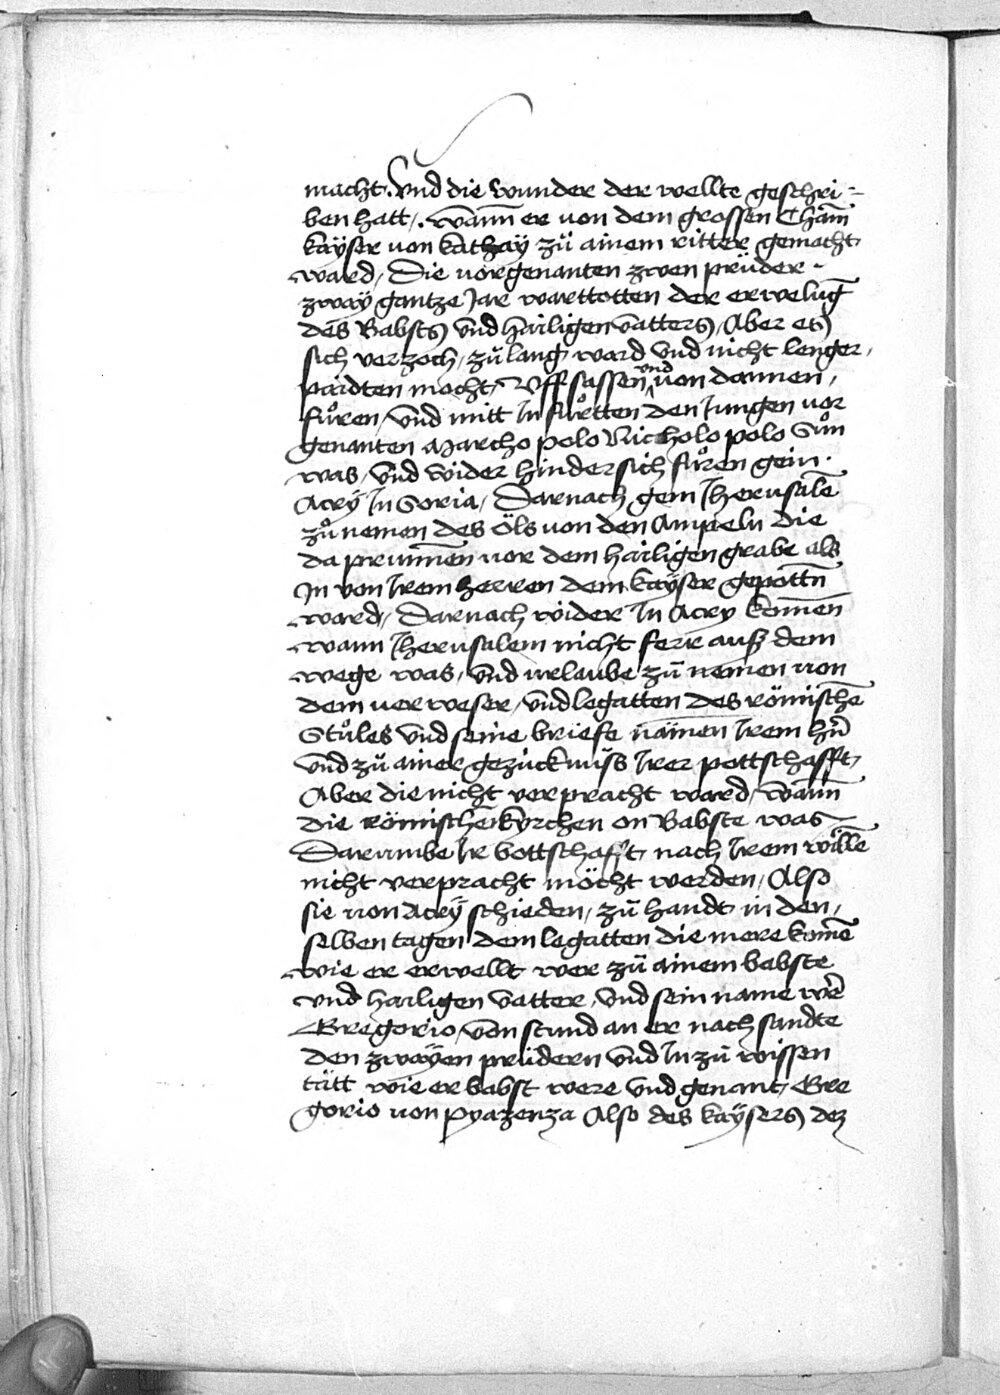 macht. Vnd die wunder der wellte geschri=
ben hatt. wann̄ er von dem grossen Cham̄
kaÿser von kathaÿ zŭ ainem ritter gemacht
ward, Die vorgenanten zwen prŭder
zwaÿ gantze Jar warttotten der erwelūg
des Babsts vnd hailigen vatters, Aber es
sich verzoch, zŭ lang ward vnd nicht lenger,
paidten mocht, Vff sassen vnd von dannen,
fůren, vnd mitt In fůrtten den Jungen vor
genanten Marcho polo Nicholo polo Sůn
was, vnd wider hindersich fůren gein
Acrÿ In Soria, Darnach gem Jherusalē
zů nemen des Öls von den Ampeln die
da prunn̄en vor dem hailigen grabe als
In von Irem herren dem kaÿser gepottn̄
ward, Darnach wider In Acry kōmen
wann Jherusalem nicht ferr auß dem
wege was, vnd vrlaube zŭ nemen von
dem verweser, vnd legatten des römischē
Stůles vnd seine briefe nämen Irem hr̄n
vnd zŭ ainer gezŭcknŭß Irer pottschafft,
Aber die nicht verpracht ward, wann̄
die römischen kyrchen on Babste was
Darumbe Ir bottschafft nach Irem wĭllē
nicht verpracht möcht werden, Also
sie von Acrÿ schieden, zŭ handt in den,
selben tagen dem legatten die mere komē
wie er erwellt wer zŭ ainem babste
vnd hailigen vatter, vnd sein name wē
Gregorio, von stund an er nach sandte
den zwaÿen prŭdern vnd In zŭ wissen
tätt wie er babst were vnd genant, Gre
gorio von Pyazenza Also des kaÿsers dez